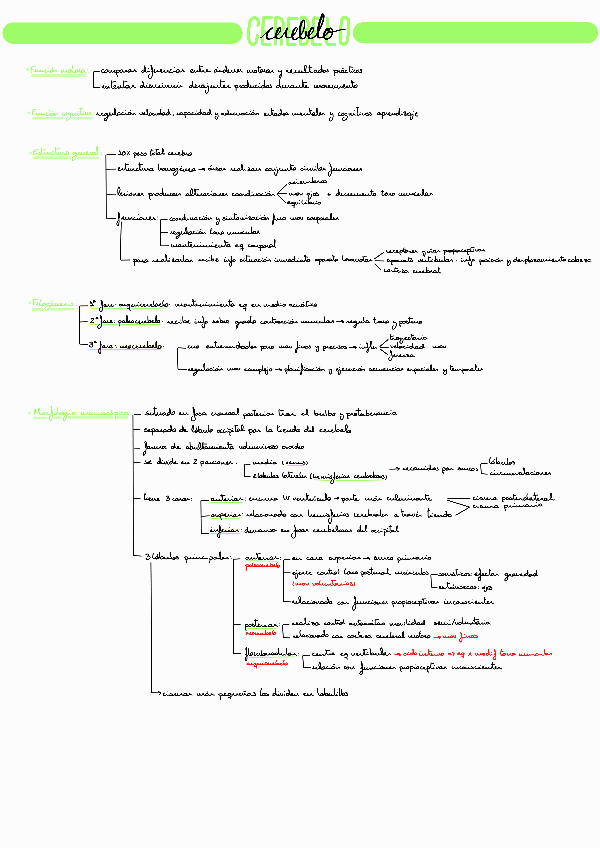 CEREBELO
cerebelo
· Función motora: comparar diferencias entre órdenes motoras y resultados prácticos
intentar disminuir desajustes producidos durante movimiento
· Función cognitiva: regulación velocidad, capacidad y adecuación estados mentales y cognitivos aprendizaje
· Estructura general: 10% peso total cerebro
estructura homogénea → áreas realizan conjunto similar funciones
lesiones producen alteraciones coordinación
miembros
mov ojos + decremento tono muscular
equilibrio
funciones: coordinación y sintonización fina mov corporales
regulación tono muscular
mantenimiento eq corporal
para realizarlas recibe info situación inmediata aparato locomotor
receptores y vías propioceptivas
aparato vestibular · info posición y desplazamiento cabeza
corteza cerebral
· Filogénesis: 1ª fase: arquicerebelo · mantenimiento eq en medio acuático
2ª fase: paleocerebelo · recibe info sobre grado contracción muscular → regula tono y postura
3ª fase: neocerebelo · mov extremidades para mov finos y precisos → influye
trayectoria
velocidad mov
fuerza
regulación mov complejo → planificación y ejecución secuencias espaciales y temporales
· Morfología macroscópica: situado en fosa craneal posterior tras el bulbo y protuberancia
separado de lóbulo occipital por la tienda del cerebelo
forma de abultamiento voluminoso ovoideo
se divide en 2 porciones: media (vermis)
2 lóbulos laterales (hemisferios cerebelosos)
→ recorridos por surcos
lóbulos
circunvoluciones
tiene 3 caras: anterior: encima IV ventrículo → parte más culminante
superior: relacionada con hemisferios cerebrales a través tienda
inferior: descansa en fosas cerebelosas del occipital
cisura posterolateral
cisura primaria
3 lóbulos principales: anterior: en cara superior → surco primario
paleocerebelo
ejerce control tono postural músculos
(mov voluntarios)
somáticos: efectan gravedad
extrínsecos: ojo
relacionado con funciones propioceptivas inconscientes
posterior: realiza control automático motilidad semi/voluntaria
neocerebelo
relacionado con corteza cerebral motora → mov finos
floculonodular: centro eq vestibular
arquicerebelo
relación con funciones propioceptivas inconscientes
→ cisuras más pequeñas los dividen en lobulillos